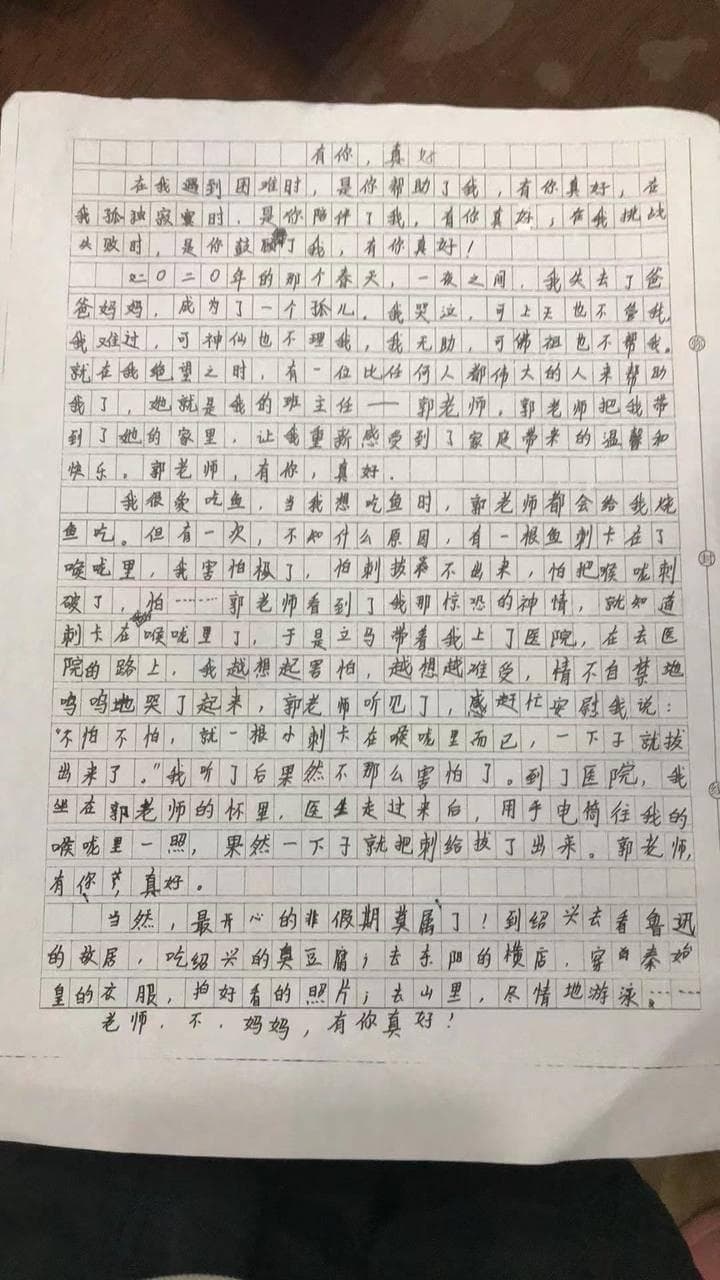 有你，真好
在我遇到困难时，是你帮助了我，有你真好，在
我孤独寂寞时，是你陪伴了我，有你真好；在我挑战
失败时，是你鼓励了我，有你真好！
二〇二〇年的那个春天，一夜之间，我失去了爸
爸妈妈，成为了一个孤儿。我哭泣，可上天也不管我，
我难过，可神仙也不理我，我无助，可佛祖也不帮我。
就在我绝望之时，有一位比任何人都伟大的人来帮助
我了，她就是我的班主任——郭老师，郭老师把我带
到了她的家里，让我重新感受到了家庭带来的温馨和
快乐。郭老师，有你，真好．
我很爱吃鱼，当我想吃鱼时，郭老师都会给我烧
鱼吃。但有一次，不知什么原因，有一根鱼刺卡在了
喉咙里，我害怕极了，怕刺拔不出来，怕把喉咙刺
破了，怕……郭老师看到了我那惊恐的神情，就知道
刺卡在喉咙里了，于是立马带着我上了医院，在去医
院的路上，我越想起害怕，越想越难受，情不自禁地
呜呜地哭了起来，郭老师听见了，感赶忙安慰我说：
“不怕不怕，就一根小刺卡在喉咙里而已，一下子就拔
出来了。”我听了后果然不那么害怕了。到了医院，我
坐在郭老师的怀里，医生走过来后，用手电筒往我的
喉咙里一照，果然一下子就把刺给拔了出来。郭老师，
有你，真好。
当然，最开心的非假期莫属了！到绍兴去看鲁迅
的故居，吃绍兴的臭豆腐；去东阳的横店，穿秦始
皇的衣服，拍好看的照片；去山里，尽情地游泳。……
老师，不，妈妈，有你真好！
封